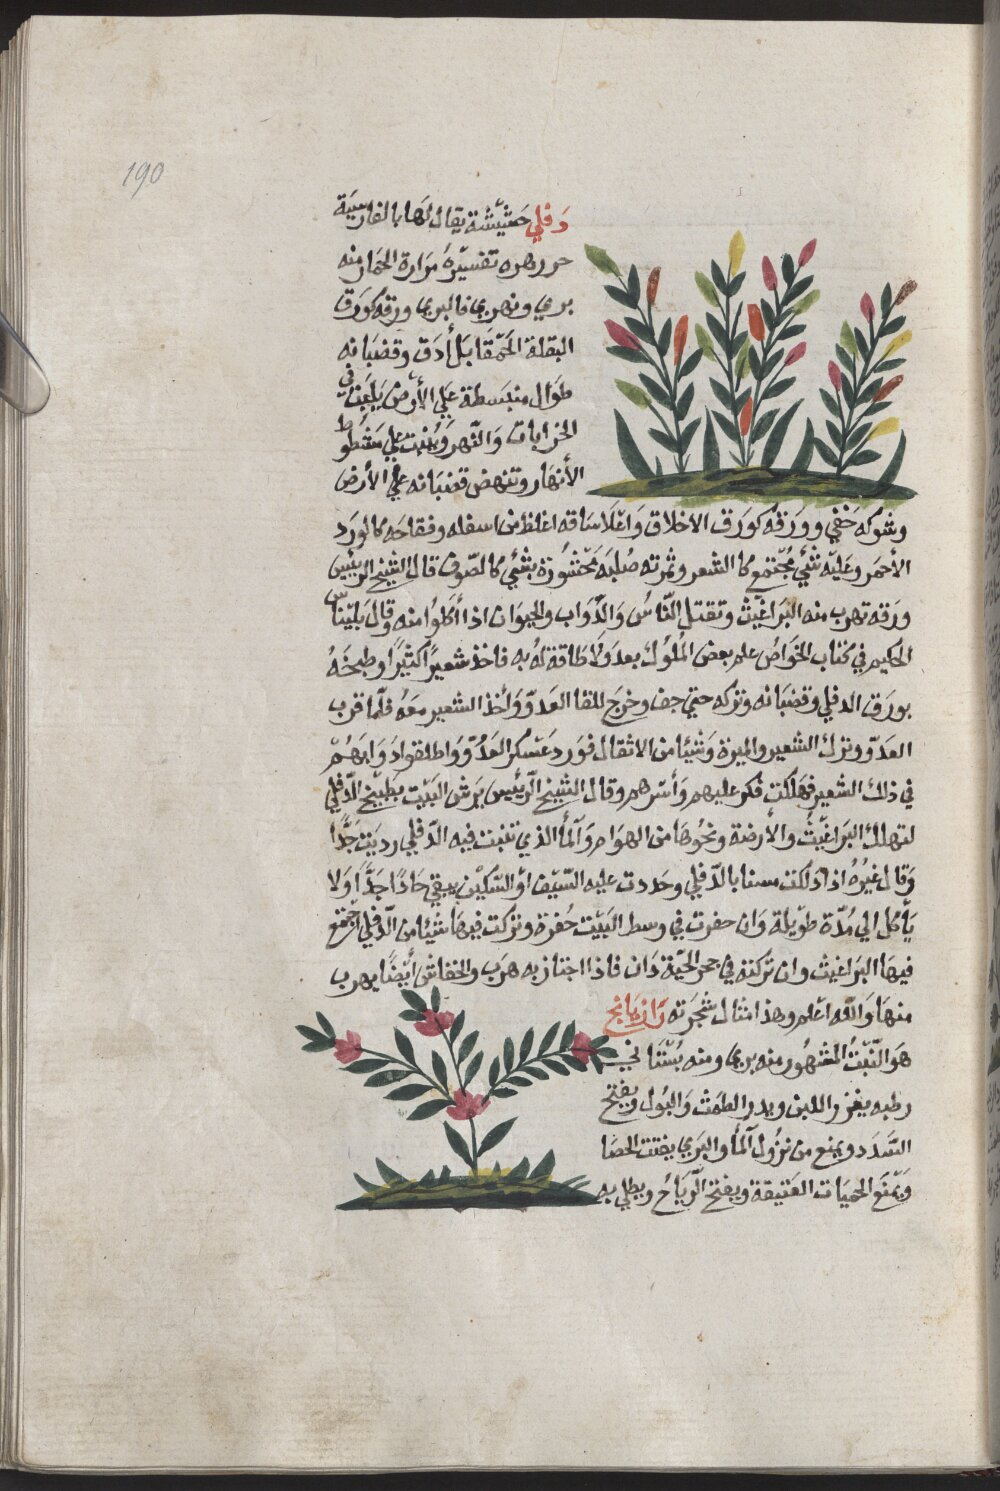 190
دفلي حشيشة يقال لها بالفارسية
حررهره تفسيره مرارة الحمار منه
بري ونهري فالبري ورقه كورق
البقلة الحمقا بل أدق وقضبانه
طوال منبسطة علي الأرض ينبت في
الخرابات والنهر وينبت علي شطوط
الأنهار وتنهض قضبانه علي الأرض
وشوكه خفي وورقه كورق الاخلاق واعلا ساقه اغلظ من اسفله وفقاحه كالورد
الأحمر وعليه شئي مجتمع كالشعر وثمرته صلبه محشوة بشئي كالصوف قال الشيخ الرئيس
ورقه تهرب منه البراغيث وتقتل الناس والدواب والحيوان اذا أكلوا منه وقال بليناس
الحكيم في كتاب الخواص علم بعض الملوك بعدو لا طاقة له به فاخذ شعيرا كثيرا وطبخه
بورق الدفلي وقضبانه وتركه حتي جف وخرج للقا العدو وأخذ الشعير معه فلما قرب
العدو وترك الشعير والميرة وشيئا من الاثقال فورد عسكر العدو واطلقوا دوابهم
في ذلك الشعير فهلكت فكر عليهم وأسرهم وقال الشيخ الرئيس يرش البيت بطبيخ الدفلي
لتهلك البراغيث والأرضة ونحوها من الهوام وألمأ الذي تنبت فيه الدفلي رديت جدا
وقال غيره اذا دلكت مسنا بالدفلي وحددت عليه السيف او السكين يبقي حادا جدا ولا
يأكل الي مدة طويلة وان حفرت في وسط البيت حفرة وتركت فيها شيئا من الدفلي اجتمع
فيها البراغيث وان تركته في جحر الحية دان فاذا اجتاز به هرب والخفاش أيضا يهرب
منها والله اعلم وهذا مثال شجرته رازيانج
هو النبت المشهور منه بري ومنه بستاني
رطبه يغزر اللبن ويدر الطمث والبول ويفتح
السدد ويمنع من نزول ألمأ والبري يفتت الحصا
ويمنع الحميات العتيقة ويفتح الرياح ويطلي به